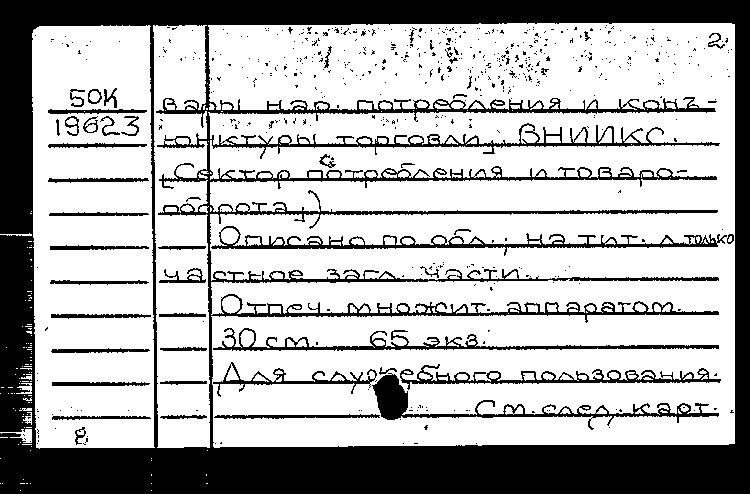 2
50К вары нар. потребления и конъ-
19623 юнктуры торговли, ВНИИКС.
[Сектор потребления и товаро-
оборота])
Описано по обл.; на тит. л. только
частное загл. части.
Отпеч. множит. аппаратом.
30 см. 65 экз.
Для служебного пользования.
См. след. карт.
8